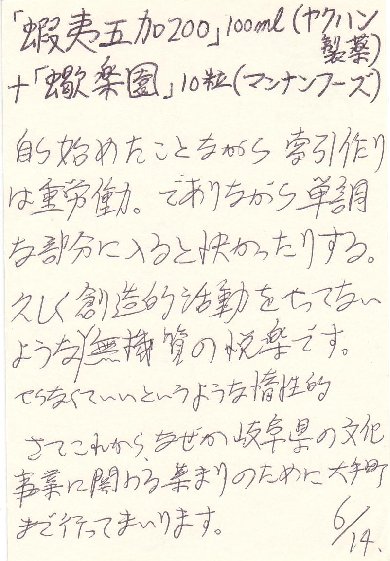 「蝦夷五加200」100ml(ヤクハン
製薬)
+「蠍楽園」10粒(マンナンフーズ)
自ら始めたことながら 索引作り
は重労働。でありながら単調
な部分に入ると快かったりする。
久しく創造的活動をやってない
ような無機質の悦楽です。
やらなくていいというような惰性的
さてこれから、なぜか岐阜県の文化
事業に関わる集まりのために大手町
まで行ってまいります。
6/14.